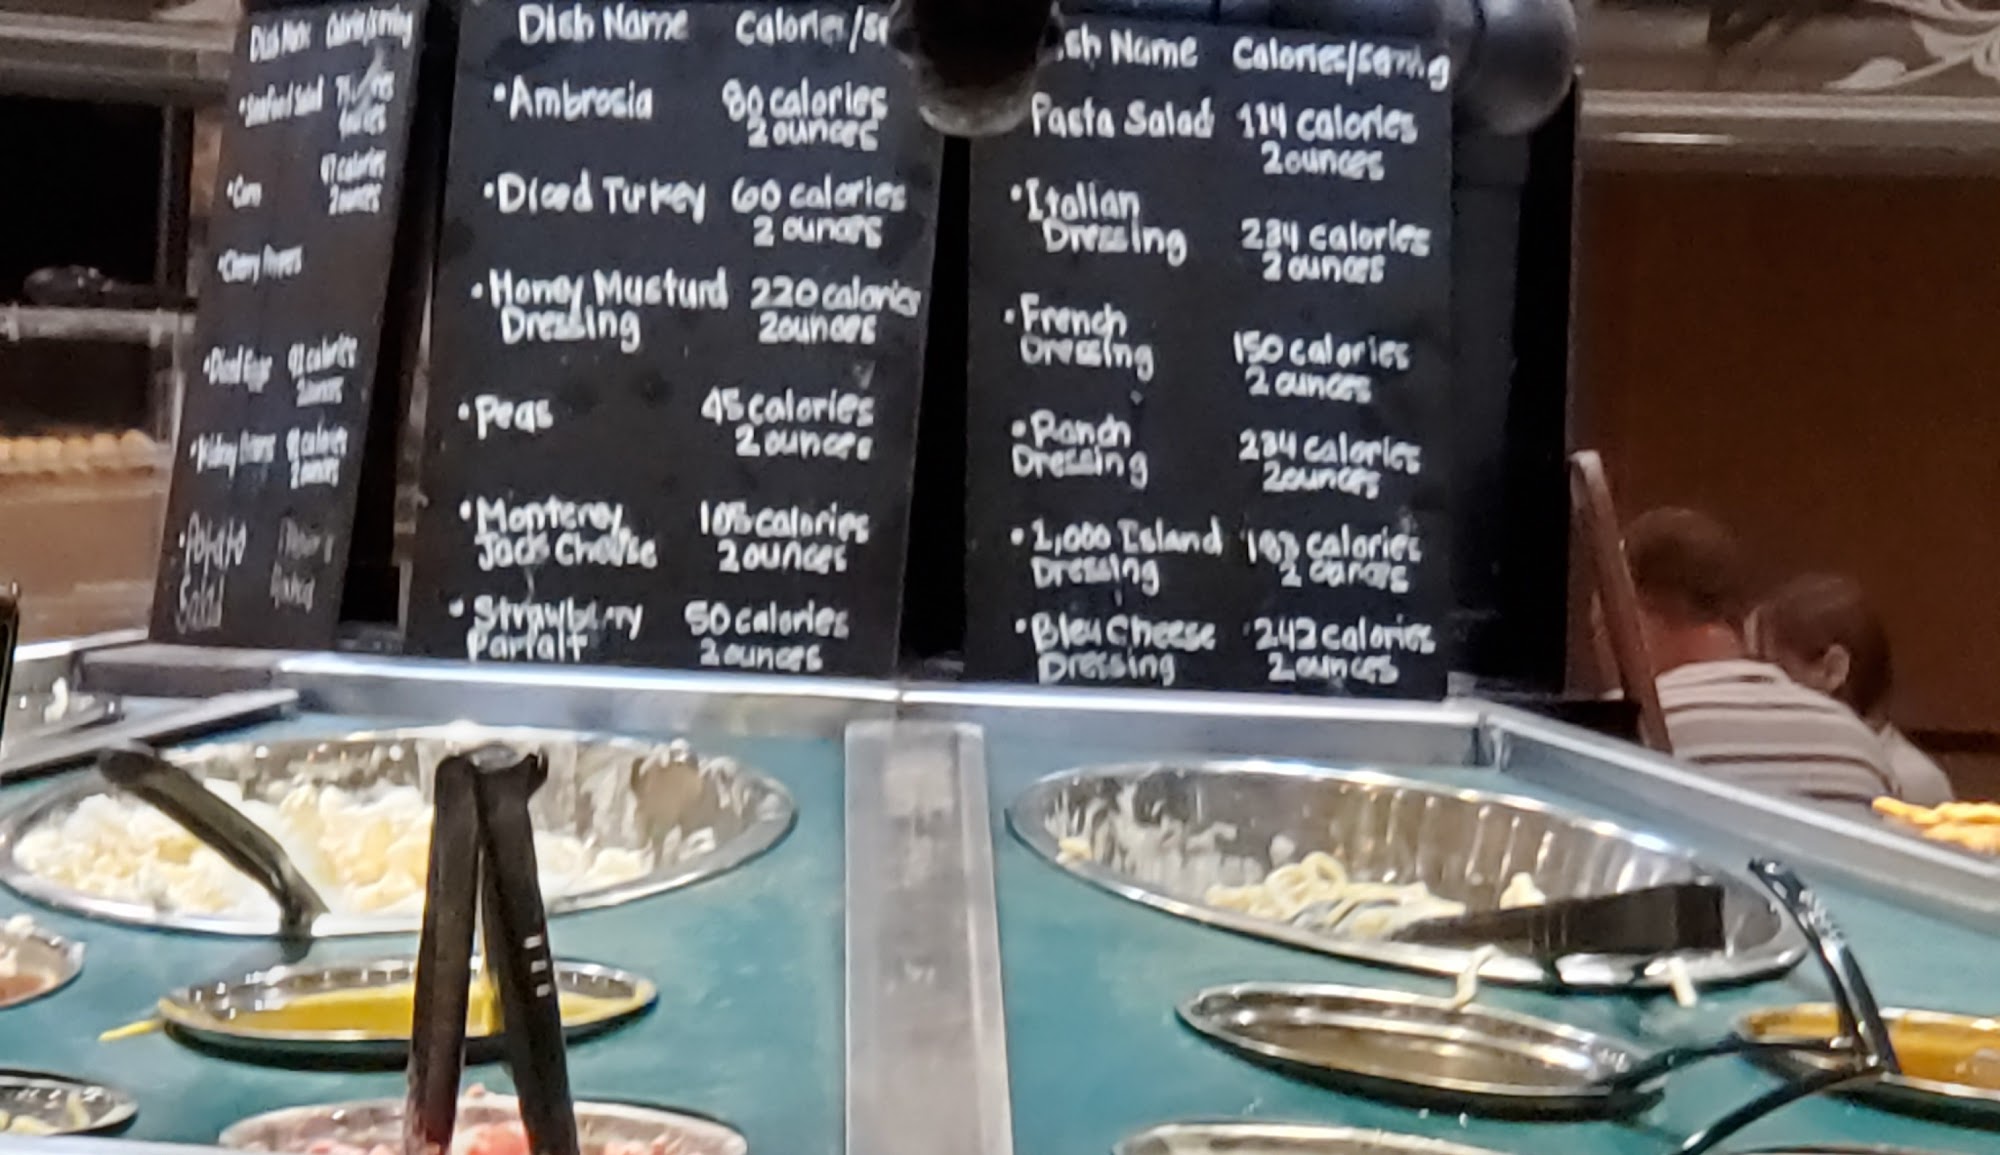 Dish Name Calories/serving
•Seafood Salad
•Corn 97 calories
2 ounces
•Cherry Peppers
•Diced Eggs 92 calories
2 ounces
•Kidney Beans calories
2 ounces
•Potato
Salad
Dish Name Calories/se
•Ambrosia 80 calories
2 ounces
•Diced Turkey 60 calories
2 ounces
•Honey Musturd 220 calories
Dressing 2 ounces
•Peas 45 calories
2 ounces
•Monterey 105 calories
Jack Cheese 2 ounces
•Strawberry 50 calories
Parfait 2 ounces
sh Name Calories/serving
Pasta Salad 114 calories
2 ounces
•Italian
Dressing 234 calories
2 ounces
•French
Dressing 150 calories
2 ounces
•Ranch
Dressing 234 calories
2 ounces
•1,000 Island calories
Dressing 2 ounces
•Bleu Cheese 242 calories
Dressing 2 ounces